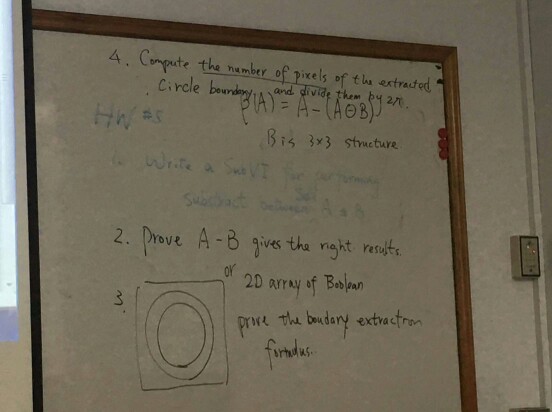 4. Compute the number of pixels of the extracted
circle boundary, and divide them by 2π.
β(A) = A - (A⊖B)
HW #5
B is 3x3 structure
1. Write a SubVI for performing
substract between A & B
2. Prove A - B gives the right results.
or 2D array of Boolean
3.
prove the boudary extraction